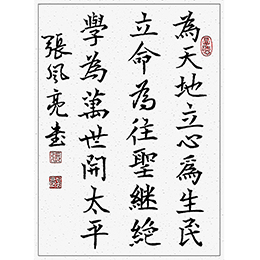 為天地立心為生民
立命為往聖繼絕
學為萬世開太平
張風亮書